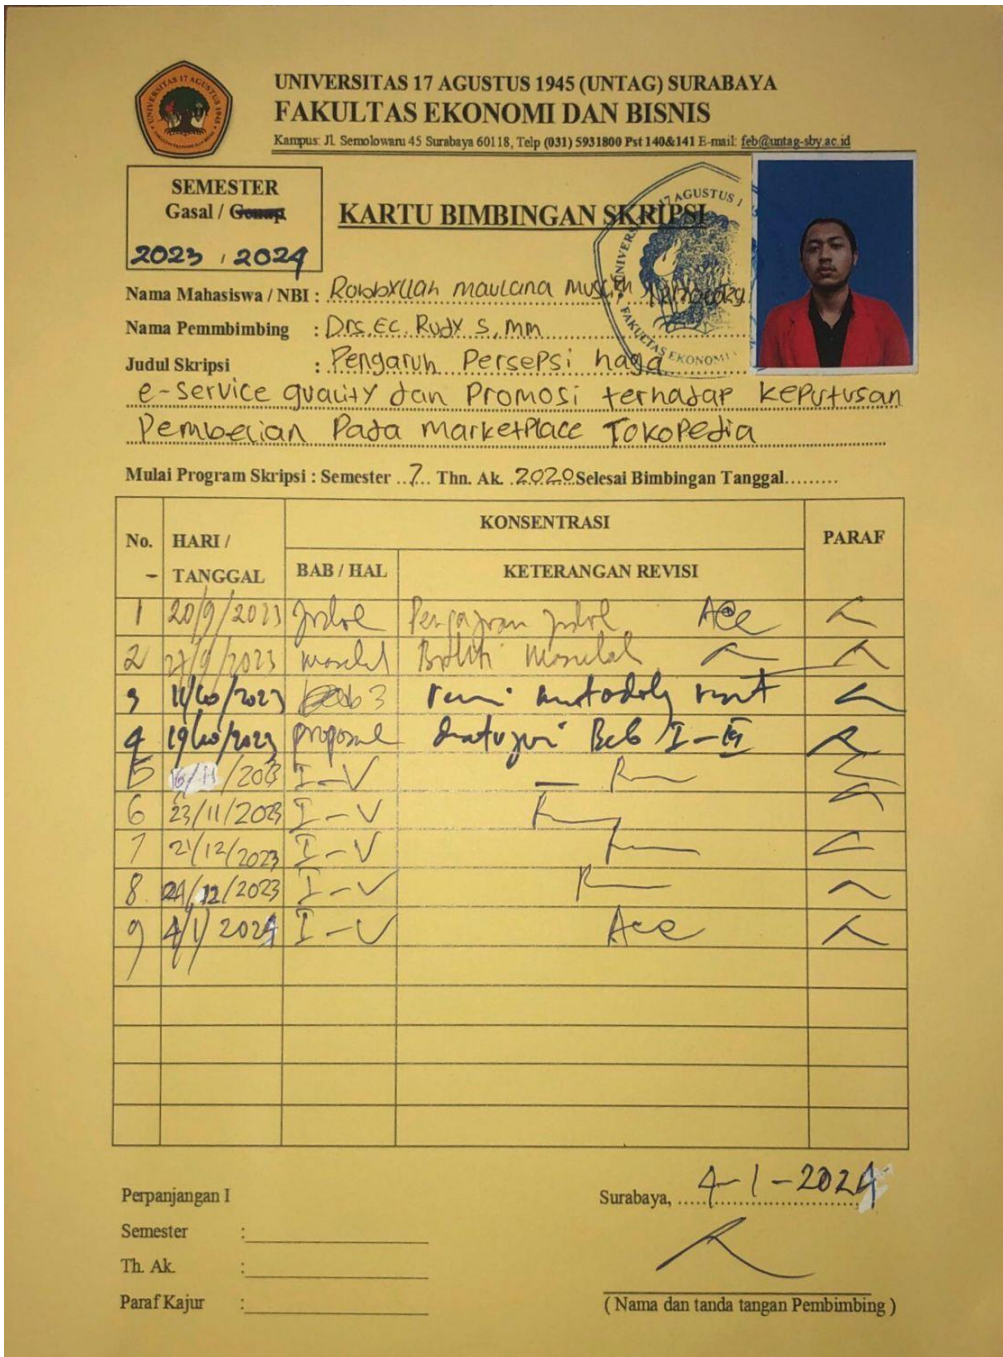 UNIVERSITAS 17 AGUSTUS 1945 (UNTAG) SURABAYA
FAKULTAS EKONOMI DAN BISNIS
Kampus: Jl. Semolowaru 45 Surabaya 60118, Telp (031) 5931800 Pst 140&141 E-mail: feb@untag-sby.ac.id
SEMESTER
Gasal / Genap
2023 / 2024
KARTU BIMBINGAN SKRIPSI
Nama Mahasiswa / NBI : maulana
Nama Pemmbimbing : Drs. Ec. Rudy S, mm
Judul Skripsi : Pengaruh Persepsi
e-service quality dan Promosi terhadap keputusan
Pembelian Pada marketplace Tokopedia
Mulai Program Skripsi : Semester 7 Thn. Ak. 2020 Selesai Bimbingan Tanggal
No. HARI / TANGGAL KONSENTRASI PARAF
BAB / HAL KETERANGAN REVISI
1 20/9/2023 Acc
2 27/9/2023
3 11/10/2023 bab 3
4 19/10/2023 proposal Bab I-III
5 16/11/2023 I-V
6 23/11/2023 I-V
7 21/12/2023 I-V
8 24/12/2023 I-V
9 4/1/2024 I-V Acc
Perpanjangan I
Semester :
Th. Ak. :
Paraf Kajur :
Surabaya, 4-1-2024
( Nama dan tanda tangan Pembimbing )